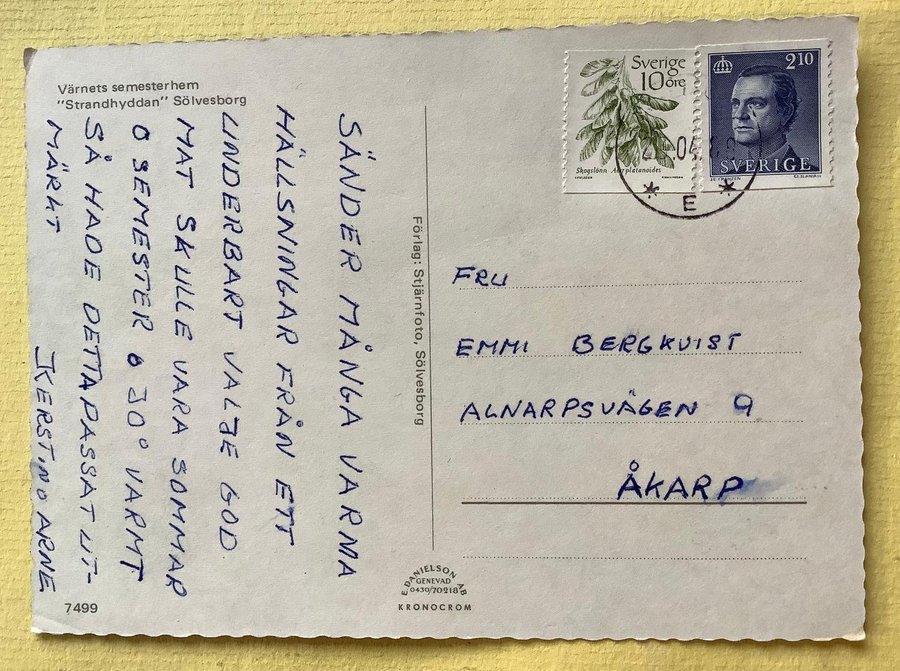 Värnets semesterhem
"Strandhyddan" Sölvesborg
SÄNDER MÅNGA VARMA
HÄLSNINGAR FRÅN ETT
UNDERBART VALJE GOD
MAT SKULLE VARA SOMMAR
O SEMESTER O 30° VARMT
SÅ HADE DETTA PASSAT UT-
MÄRKT
KERSTIN O ARNE
7499
Förlag: Stjärnfoto, Sölvesborg
E. DANIELSON AB
GENEVAD
0430/70218
KRONOCROM
Sverige
10 öre
Skogslönn Acer platanoides
2.10
SVERIGE
04
E
FRU
EMMI BERGKVIST
ALNARPSVÄGEN 9
ÅKARP